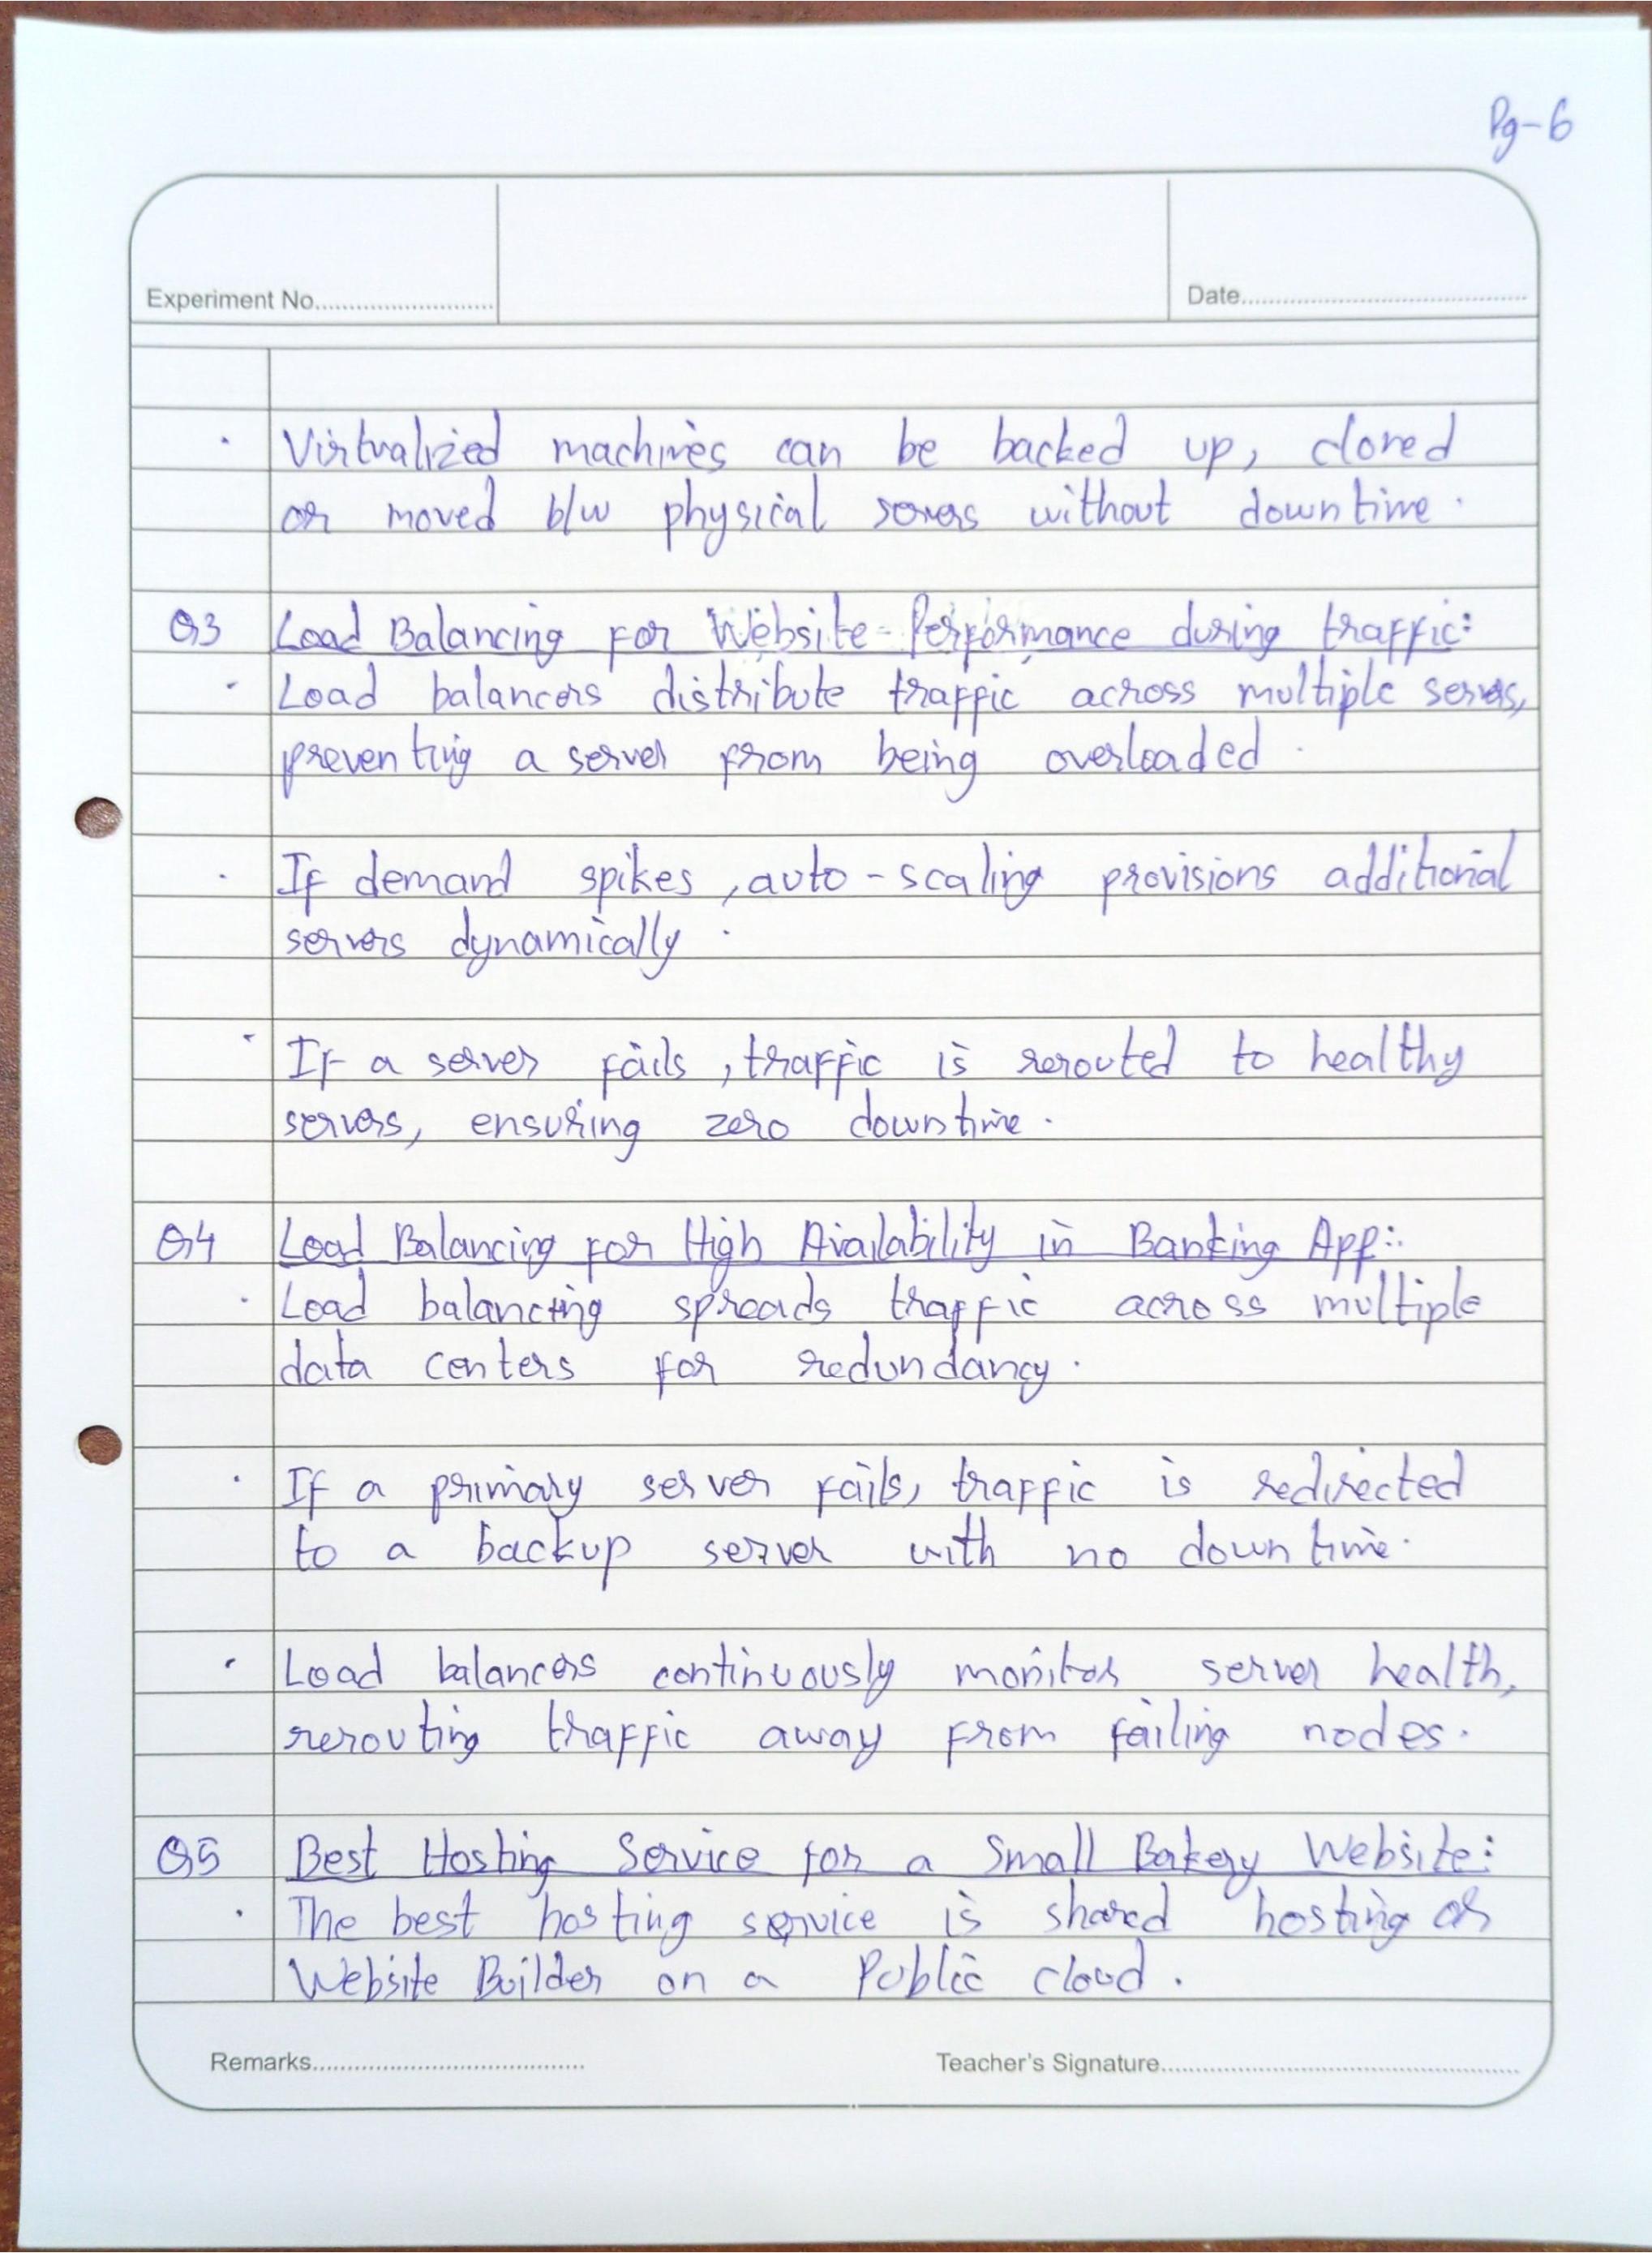 Pg-6
Experiment No.
Date
· Virtualized machines can be backed up, cloned
or moved b/w physical servers without downtime.
Q3 Load Balancing for Website Performance during traffic:
· Load balancers distribute traffic across multiple servers,
preventing a server from being overloaded.
· If demand spikes, auto-scaling provisions additional
servers dynamically.
· If a server fails, traffic is rerouted to healthy
servers, ensuring zero downtime.
Q4 Load Balancing for High Availability in Banking App:
· Load balancing spreads traffic across multiple
data centers for redundancy.
· If a primary server fails, traffic is redirected
to a backup server with no downtime.
· Load balancers continuously monitor server health,
rerouting traffic away from failing nodes.
Q5 Best Hosting Service for a Small Bakery Website:
· The best hosting service is shared hosting or
Website Builder on a Public cloud.
Remarks
Teacher's Signature